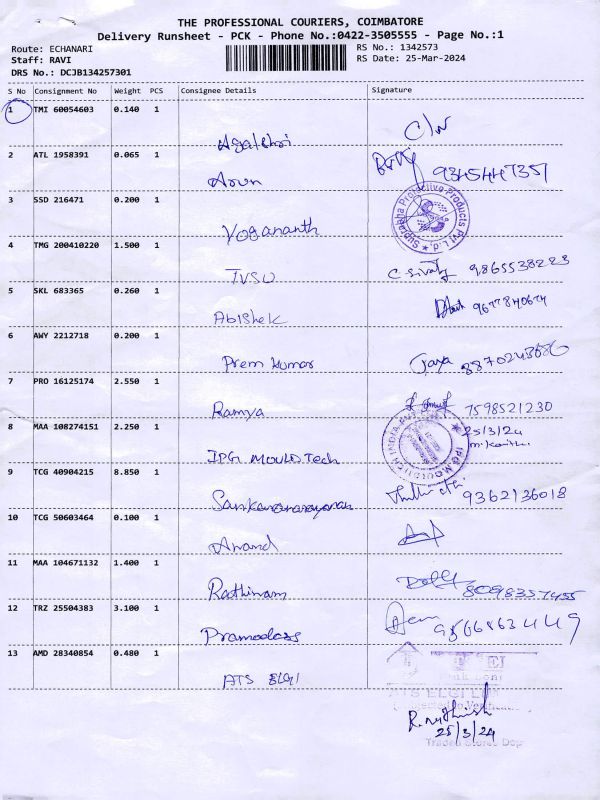 THE PROFESSIONAL COURIERS, COIMBATORE
Delivery Runsheet - PCK - Phone No.:0422-3505555 - Page No.:1
Route: ECHANARI RS No.: 1342573
Staff: RAVI RS Date: 25-Mar-2024
DRS No.: DCJB134257301
S No Consignment No Weight PCS Consignee Details Signature
1 TMI 60054603 0.140 1
Agalshri C/W
2 ATL 1958391 0.065 1
Arun 9345447357
3 SSD 216471 0.200 1
Yogananth Suprabha Protective Products Pvt Ltd.
4 TMG 200410220 1.500 1
TVSU 9865538223
5 SKL 683365 0.260 1
Abishek 9677840674
6 AWY 2212718 0.200 1
Prem Kumar Jaya
7 PRO 16125174 2.550 1
Ramya 7598521230
8 MAA 108274151 2.250 1 25/3/24
IPG MOULD Tech
9 TCG 40904215 8.850 1
Sankaranarayanan 9362136018
10 TCG 50603464 0.100 1
Anand
11 MAA 104671132 1.400 1
Rathinam 8098357455
12 TRZ 25504383 3.100 1
Pramodass 9566863449
13 AMD 28340854 0.480 1
ATS Elgi ATS ELGI
25/3/24